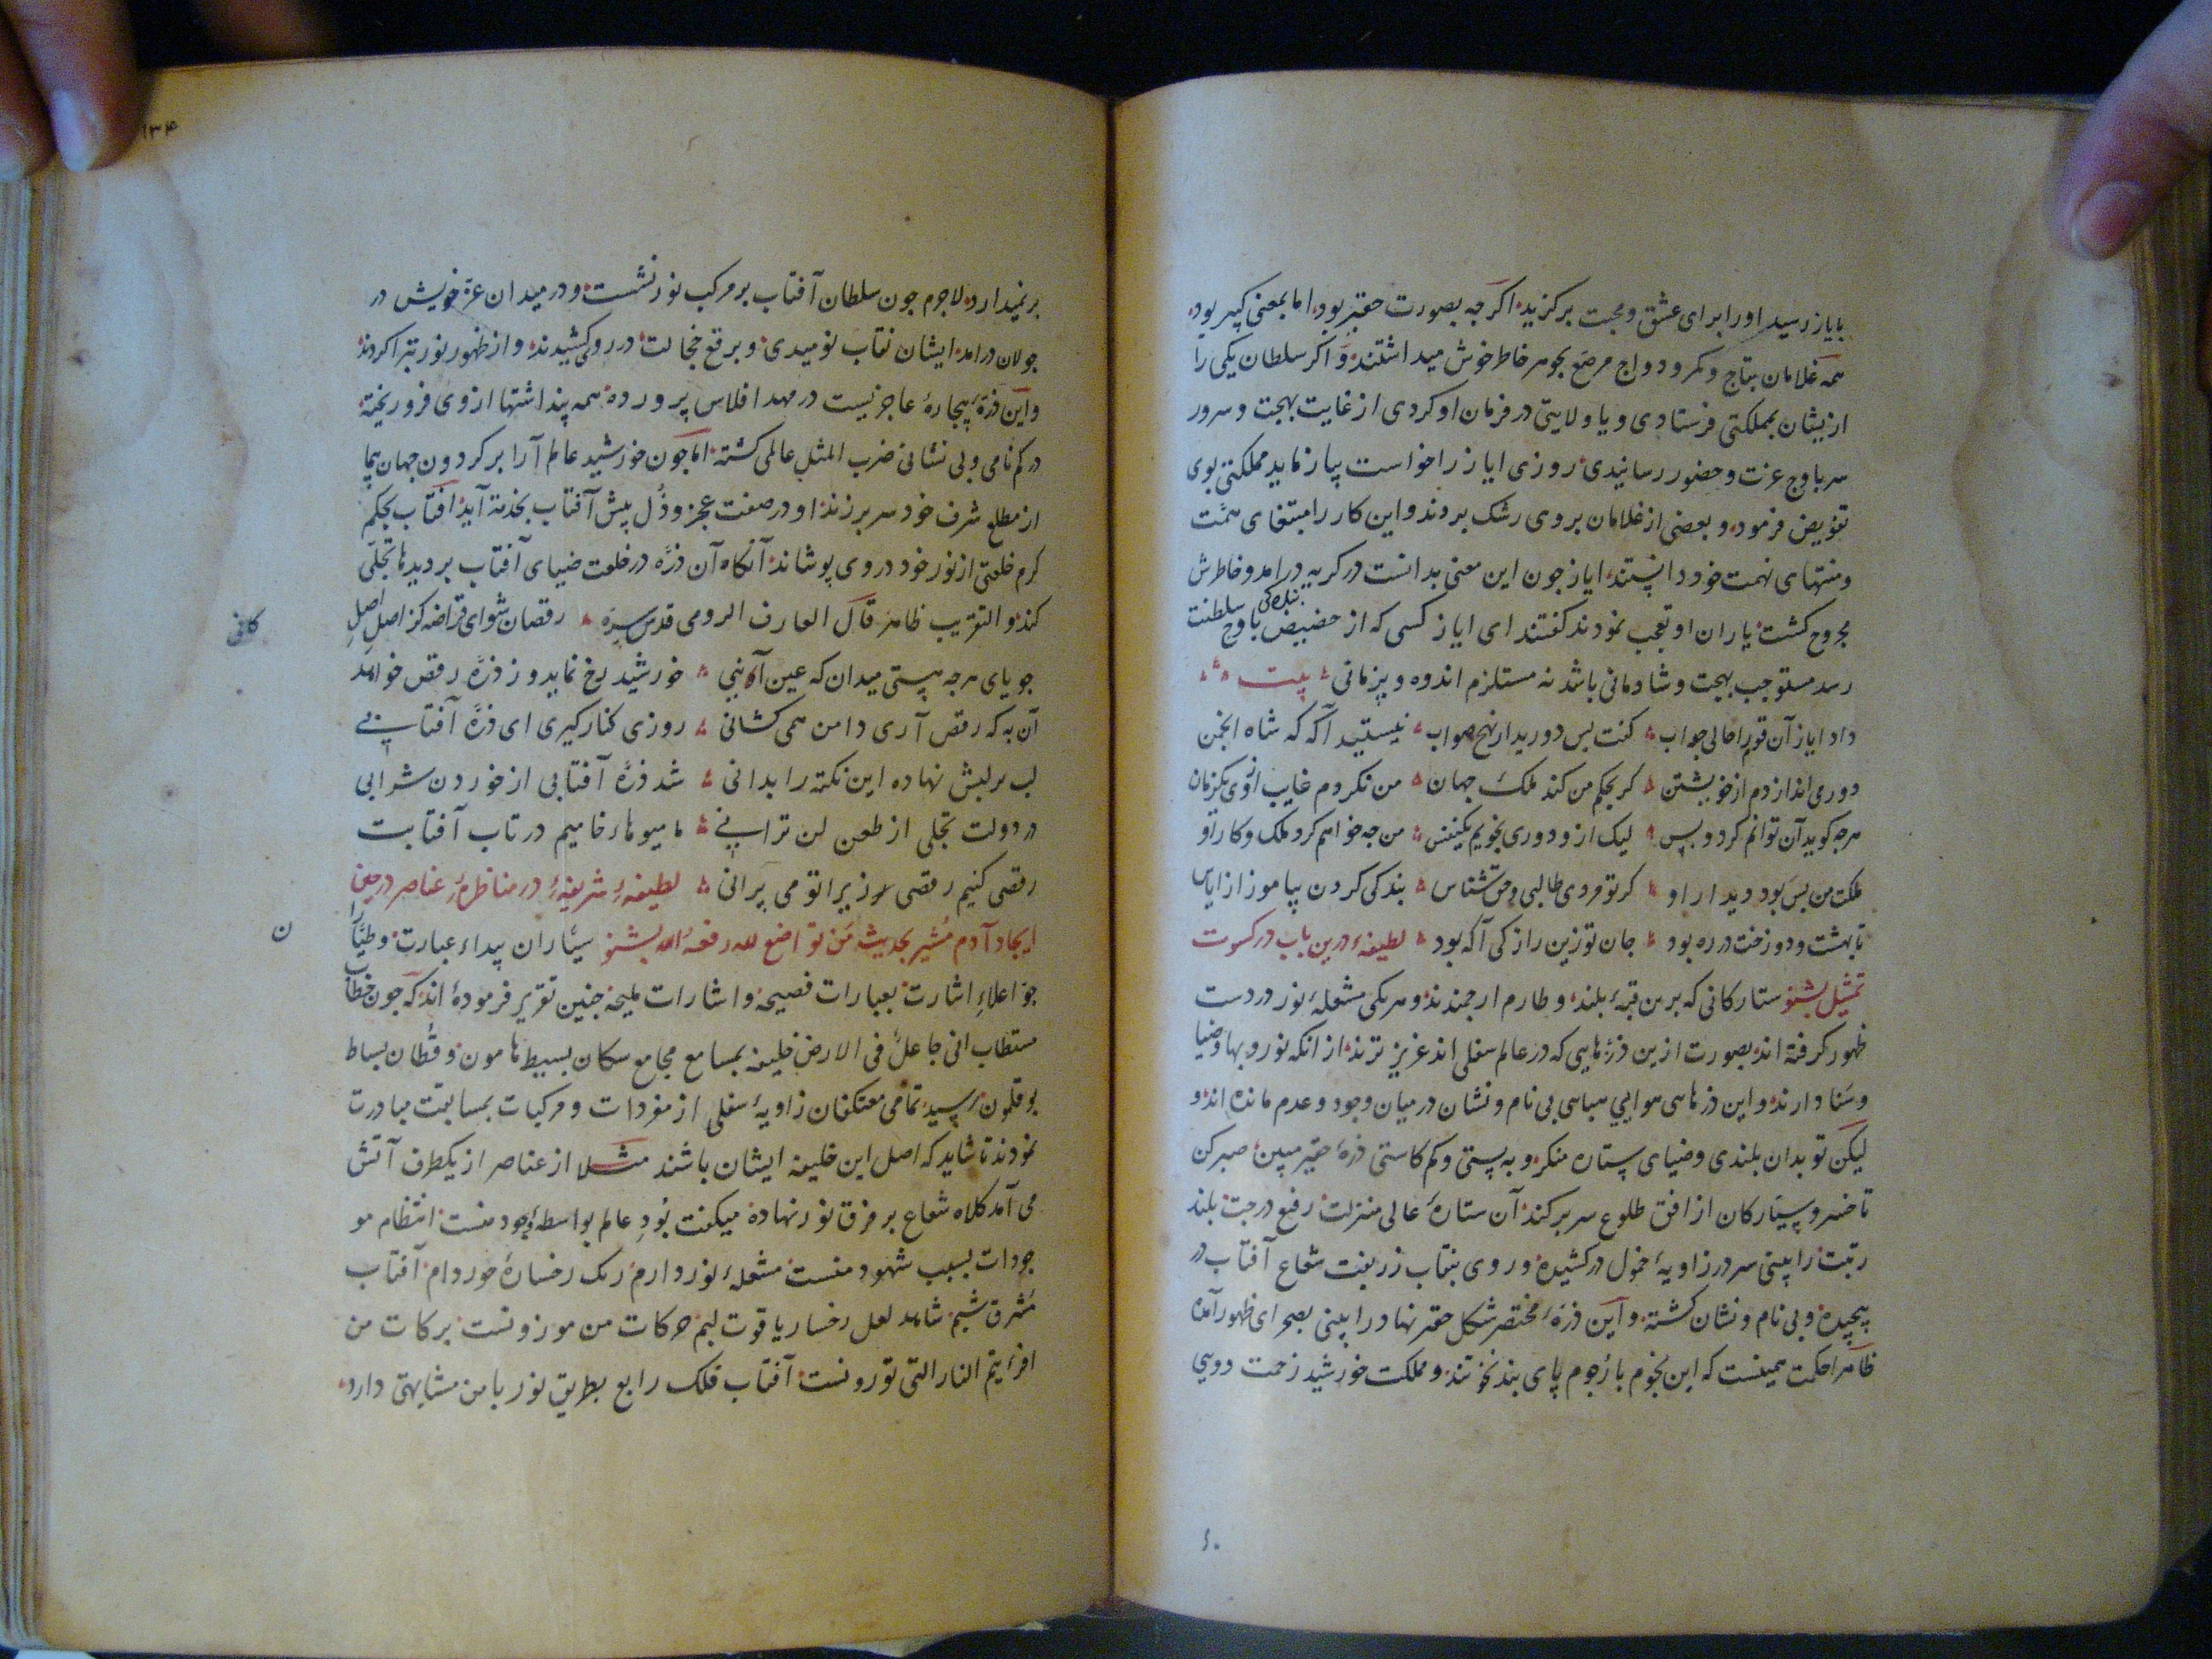 بایاز رسید او را برای عشق و محبت برکزید اکرچه بصورت حقیر بود اما بمعنی کبیر بود
همه غلامان بتاج و کمر و دواج مرصع بجوهر خاطر خوش میداشتند و اکر سلطان یکی را
ازیشان بمملکتی فرستادی و یا ولایتی در فرمان او کردی از غایت بهجت و سرور
سر باوج عزت و حضور رسانیدی روزی ایاز را خواست بیازماید مملکتی بوی
تفویض فرمود و بعضی از غلامان بروی رشک بردند و این کار را مبتغای همت
و منتهای نهمت خود دانستند ایاز چون این معنی بدانست در کریه درامد و خاطرش
مجروح کشت یاران او تعجب نمودند کفتند ای ایاز کسی که از حضیض بندکی باوج سلطنت
رسد مستوجب بهجت و شادمانی باشد نه مستلزم اندوه و پژمانی بیت
داد ایاز آن قوم را حالی جواب کفت بس دورید از نهج صواب نیستید آکه که شاه انجمن
دور می اندازدم از خویشتن کر بحکم من کند ملک جهان من نکردم غایب از وی یکزمان
هرچه کوید آن توانم کرد و بس لیک ازو دوری نجویم یکنفس من چه خواهم کرد ملک و کار او
ملکت من بس بود دیدار او کر تو مردی طالبی و حق شناس بندکی کردن بیاموز از ایاس
تا بهشت و دوزخت در ره بود جان تو زین راز کی آکه بود لطیفهٔ درین باب در کسوت
تمثیل بشنو ستارکانی که برین قبهٔ بلند و طارم ارجمندند و هریکی مشعلهٔ نور در دست
ظهور کرفته اند بصورت ازین ذرّهایی که در عالم سفلی اند عزیزترند از انکه نور و بها و ضیا
و سنا دارند و این ذرهای هوایی هبایی بی نام و نشان در میان وجود و عدم مانده اند و
لیکن تو بدان بلندی و ضیای ستاره منکر و به پستی و کم کاستی ذرهٔ حقیر مبین صبر کن
تا خسرو سیارکان از افق طلوع سر برکند آن ستارهٔ عالی منزلت رفیع درجت بلند
رتبت را بینی سر در زاویهٔ خمول درکشیده و روی بنقاب زربفت شعاع آفتاب در
پیچیده و بی نام و نشان کشته و این ذرهٔ مختصر شکل حقیر نهاد را بینی بصحرای ظهور آمده
ظاهرا حکمت همینست که این نجوم با رُجوم پای بند نخوتند و مملکت خورشید زحمت دویی
۱۳۴
برنمیدارد لاجرم چون سلطان آفتاب بر مرکب نور نشست و در میدان عزّ خویش در
جولان درامد ایشان نقاب نومیدی و برقع خجالت در روی کشیدند و از ظهور نور تبرا کردند
و این ذرهٔ بیچارهٔ عاجزیست در مهد افلاس پرورده همه پنداشتها از وی فرو ریخته
در کم نامی و بی نشانی ضرب المثل عالمی کشته اما چون خورشید عالم آرا بر کردون جهان پیما
از مطلع شرف خود سر برزند او در صفت عجز و ذُل پیش آفتاب بخدمة آید آفتاب بحکم
کرم خلعتی از نور خود در وی پوشاند آنکاه آن ذرّه در خلعت ضیای آفتاب بر دیدها تجلّی
کند و التقریب ظاهر قال العارف الرومی قدس سره رقصان شو ای قراضه کز اصل اصلِ
کانی
جویای هرچه هستی میدان که عین آنی خورشید رخ نماید وز ذرّه رقص خواهد
آن به که رقص آری دامن همی کشانی روزی کنار کیری ای ذرّه آفتابی
لب بر لبش نهاده این نکته را بدانی شد ذرّه آفتابی از خوردن شرابی
در دولت تجلی از طعن لن ترانی ما میوهاء خامیم در تاب آفتابت
رقصی کنیم رقصی زیرا تو می پزانی لطیفهٔ شریفهٔ در مناظرهٔ عناصر در حین
ایجاد آدم مُشیر بحدیث من تواضع لله رفعه الله بشنو سیّاران پیداء عبارت و طیّارا
ن
جوّ اعلاءِ اشارت بعبارات فصیحه و اشارات ملیحه چنین تقریر فرمودهٔ اند که چون خطاب
مستطاب انی جاعل فی الارض خلیفه بمسامع مجامع سکان بسیط هامون و قُطان بساط
بوقلمون رسید تمامی معتکفان زاویهٔ سفلی از مفردات و مرکبات بمسابقت مبادرت
نمودند تا شاید که اصل این خلیفه ایشان باشند مثلا از عناصر از یکطرف آتش
می آمد کلاه شعاع بر فرق نور نهاده میکفت نورِ عالم بواسطهٔ وجود منست انتظام مو
جودات بسبب شهود منست مشعلهٔ نور دارم رنک رخسارهٔ حور دام آفتاب
مشرق شبم شاهد لعل رخسار یاقوت لبم حرکات من موزونست برکات من
افرءیتم النار التی تورونست آفتاب فلک رابع بطریق نور با من مشابهتی دارد